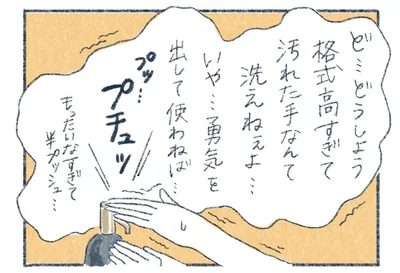 ど…どうしよう
格式高すぎて
汚れた手なんて
洗えねぇよ…
いや…勇気を
出して使わねば…
プッ…
プチュッ
もったいなすぎて
半プッシュ…